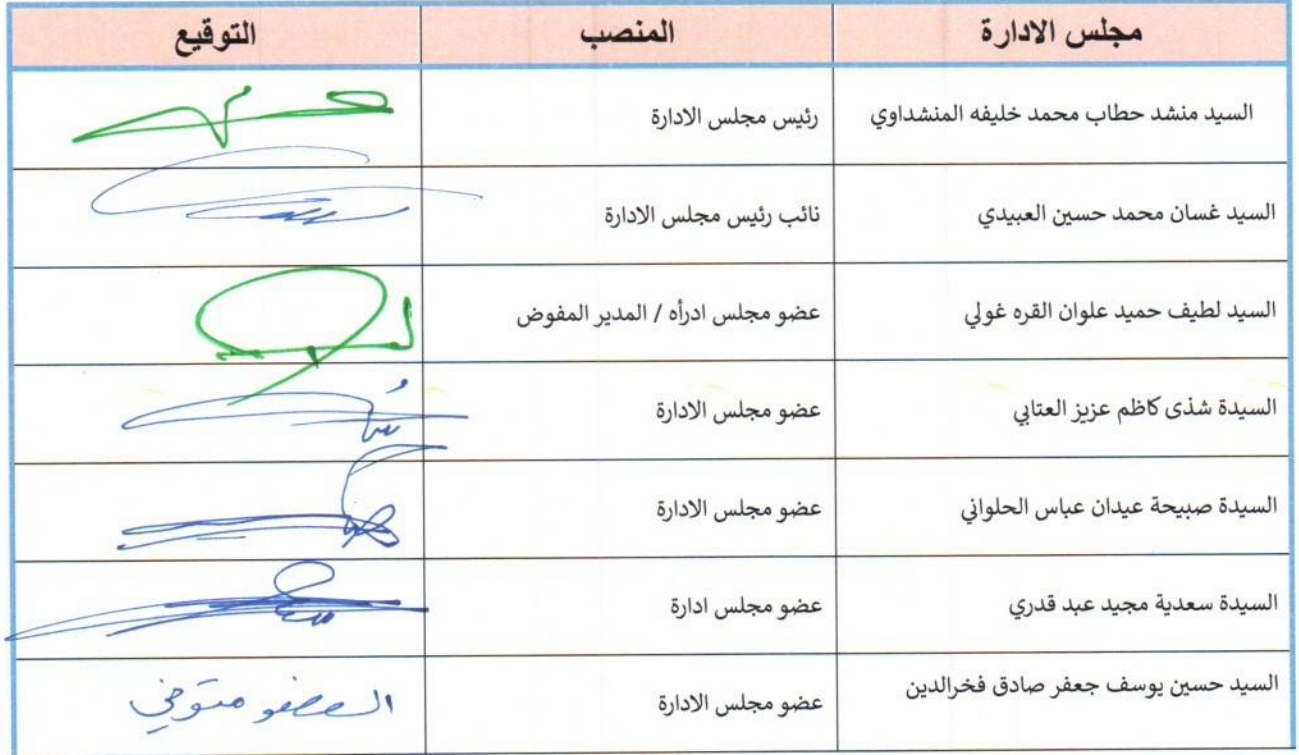 مجلس الادارة المنصب التوقيع
السيد منشد حطاب محمد خليفه المنشداوي رئيس مجلس الادارة
السيد غسان محمد حسين العبيدي نائب رئيس مجلس الادارة
السيد لطيف حميد علوان القره غولي عضو مجلس ادرأه / المدير المفوض
السيدة شذى كاظم عزيز العتابي عضو مجلس الادارة
السيدة صبيحة عيدان عباس الحلواني عضو مجلس الادارة
السيدة سعدية مجيد عبد قدري عضو مجلس ادارة
السيد حسين يوسف جعفر صادق فخرالدين عضو مجلس الادارة العضو متوفي